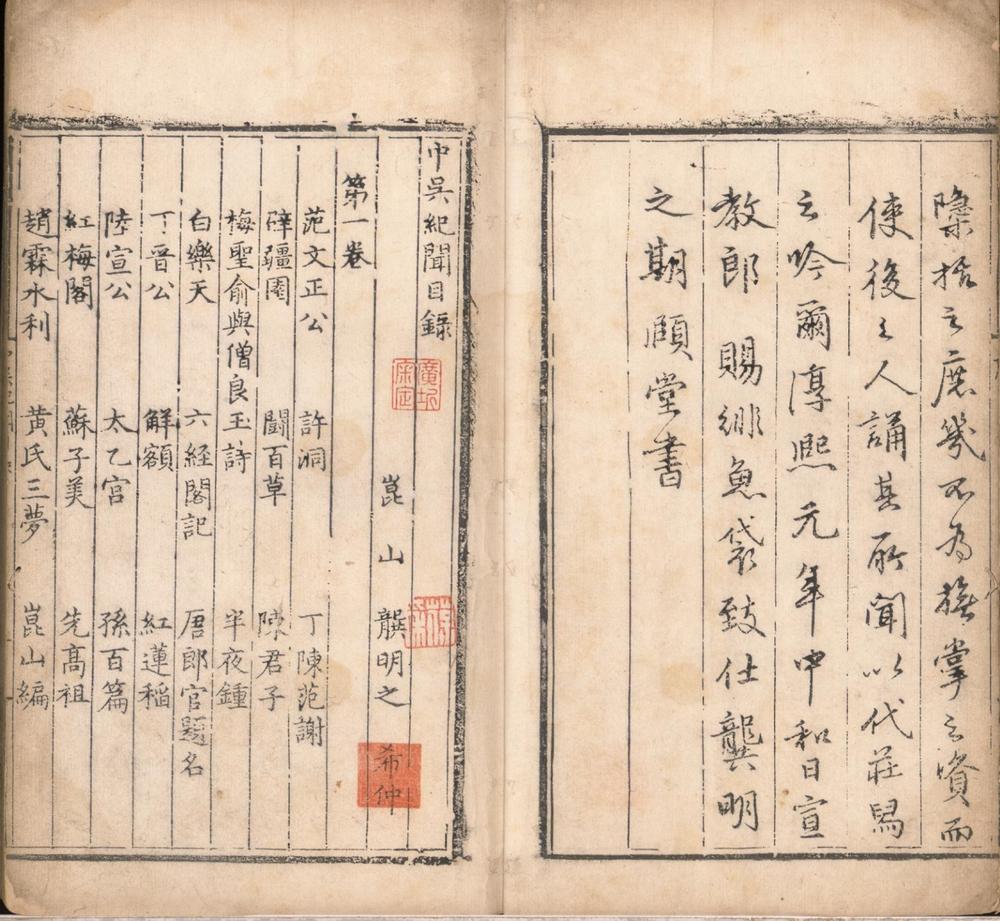 檃括之庶幾不為撫掌之資而
使後之人誦其所聞以代莊舄
之吟爾淳熙元年中和日宣
教郎 賜緋魚袋致仕龔明
之期頤堂書
中吳紀聞目錄
廣圻審定
崑山 龔明之
希仲
第一卷
范文正公 許洞 丁陳范謝
辟疆園 鬪百草 陳君子
梅聖俞與僧良玉詩 半夜鍾
白樂天 六經閣記 唐郎官題名
丁晉公 解額 紅蓮稻
陸宣公 太乙宮 孫百篇
紅梅閣 蘇子美 先高祖
趙霖水利 黃氏三夢 崑山編